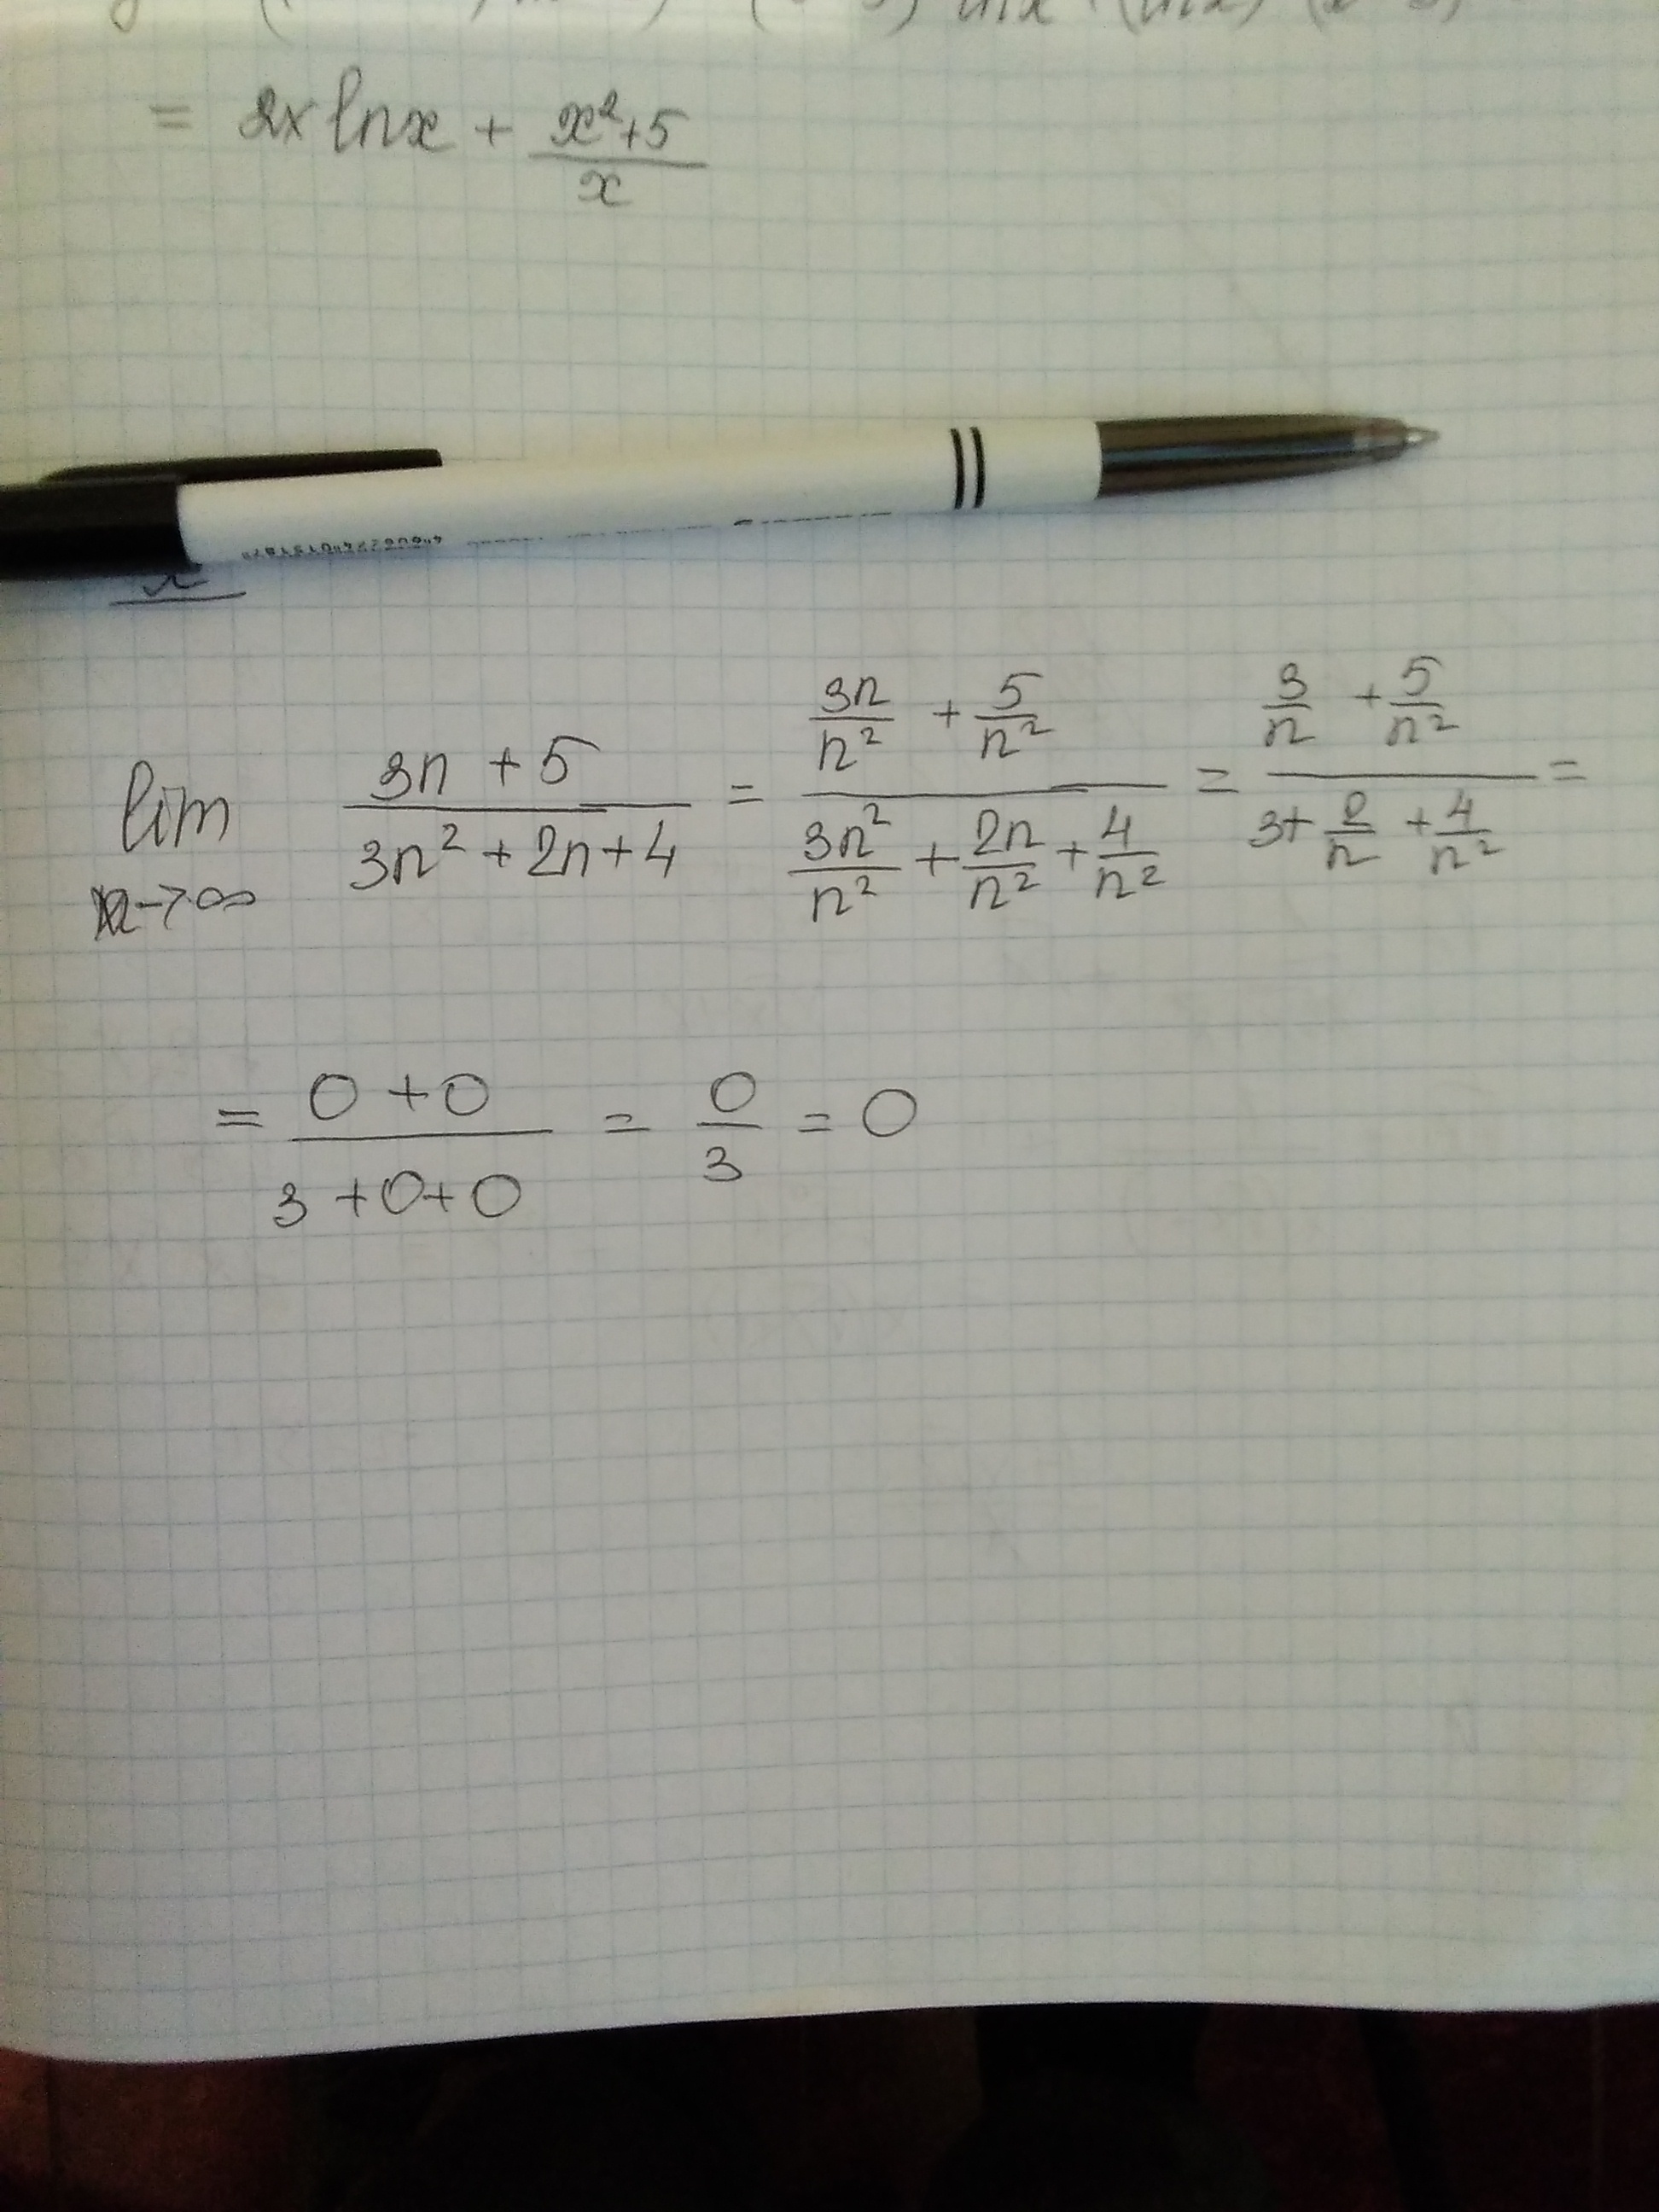 = 2x lnx + (x²+5)/x
lim n→∞ (3n+5)/(3n²+2n+4) = (3n/n² + 5/n²)/(3n²/n² + 2n/n² + 4/n²) = (3/n + 5/n²)/(3+ 2/n + 4/n²) =
= (0+0)/(3+0+0) = 0/3 = 0